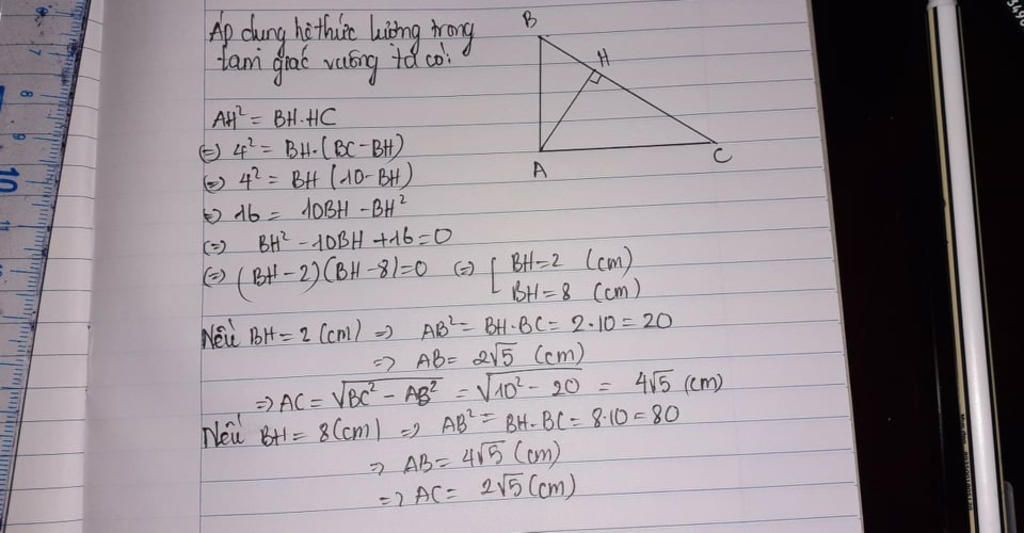 Áp dụng hệ thức lượng trong
tam giác vuông ta có:
B
H
A
C
AH² = BH.HC
(=) 4² = BH.(BC-BH)
(=) 4² = BH (10-BH)
(=) 16 = 10BH - BH²
(=) BH² - 10BH + 16 = 0
(=) (BH-2)(BH-8)=0 (=) [ BH=2 (cm)
BH=8 (cm)
Nếu BH = 2 (cm) => AB² = BH.BC = 2.10 = 20
=> AB = 2√5 (cm)
=> AC = √BC² - AB² = √10² - 20 = 4√5 (cm)
Nếu BH = 8(cm) => AB² = BH.BC = 8.10 = 80
=> AB = 4√5 (cm)
=> AC = 2√5 (cm)
7
8
9
10
11